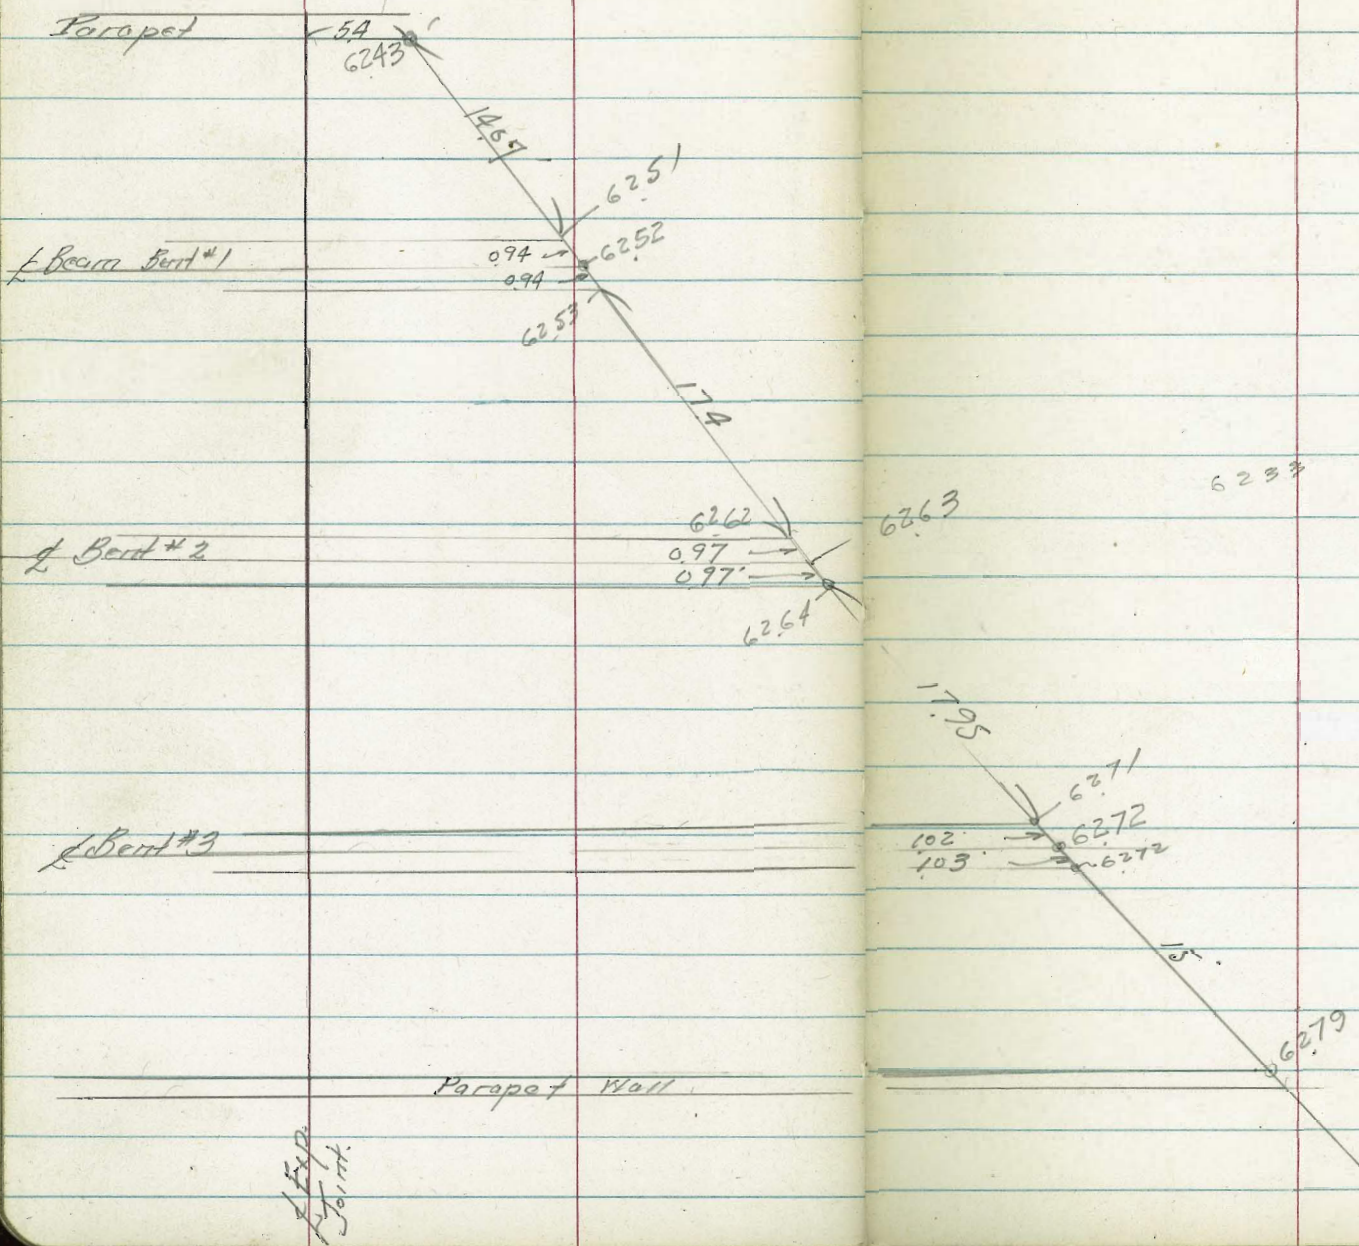 Parapet 5.4
62.43
14.67
62.51
℄ Beam Bent #1 0.94 62.52
0.94
62.53
17.4
6233
62.62 62.63
℄ Bent #2 0.97
0.97
62.64
17.95
62.71
℄ Bent #3 1.02 62.72
1.03 62.72
15.
62.79
Parapet Wall
℄ Exp.
Joint.